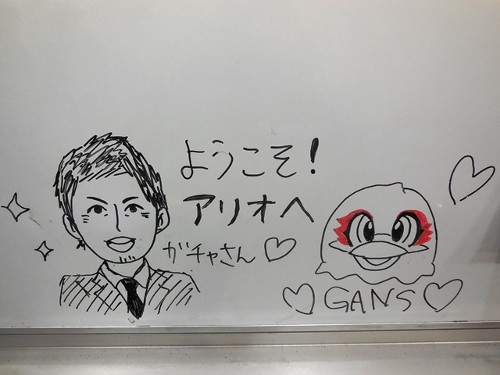 ようこそ!
アリオへ
ガチャさん♡
GANS